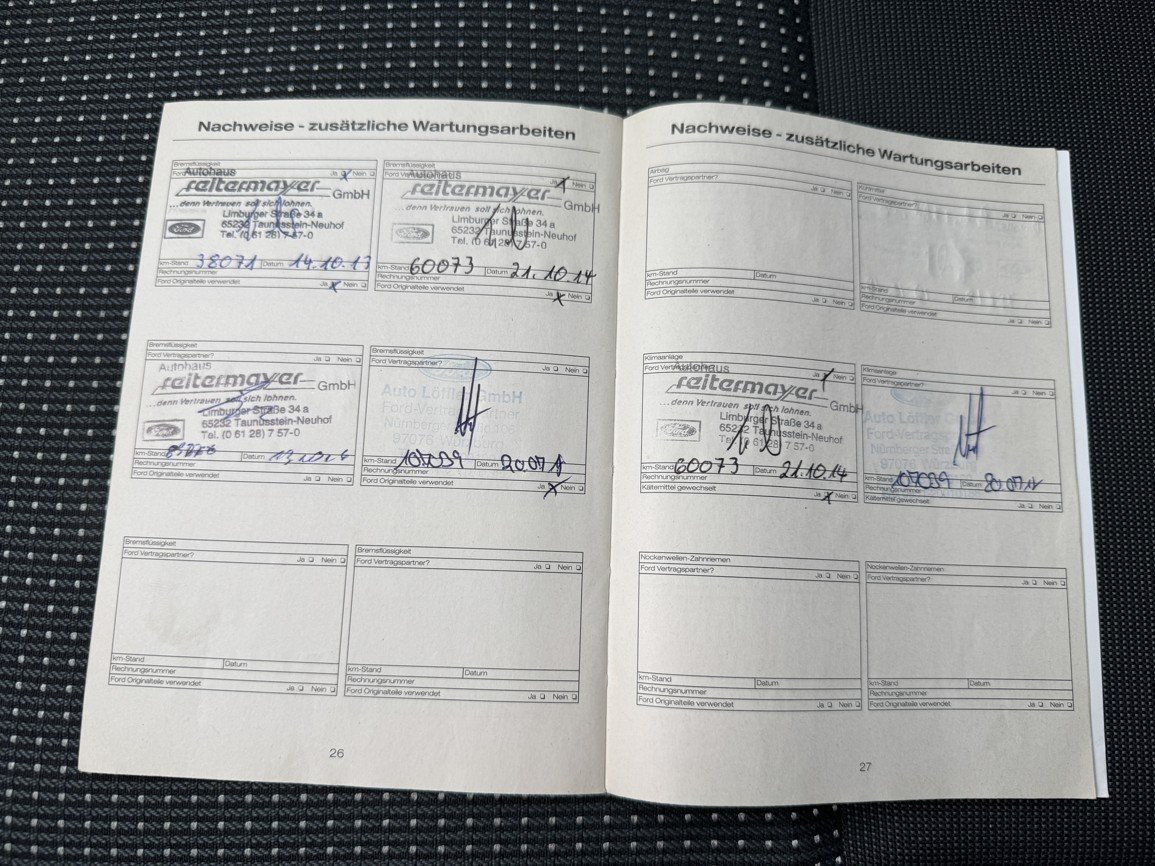 Nachweise - zusätzliche Wartungsarbeiten
Bremsflüssigkeit
Ford Ja x Nein ❏
Autohaus
reitermayer GmbH
...denn Vertrauen soll sich lohnen.
Limburger Straße 34 a
65232 Taunusstein-Neuhof
Tel. (0 61 28) 7 57-0
Ford
km-Stand 38071 Datum 14.10.13
Rechnungsnummer
Ford Originalteile verwendet Ja x Nein ❏
Bremsflüssigkeit
Ja x Nein ❏
Autohaus
reitermayer GmbH
...denn Vertrauen soll sich lohnen.
Limburger Straße 34 a
65232 Taunusstein-Neuhof
Tel. (0 61 28) 7 57-0
km-Stand 60073 Datum 21.10.14
Rechnungsnummer
Ford Originalteile verwendet Ja x Nein ❏
Bremsflüssigkeit
Ford Vertragspartner? Ja ❏ Nein ❏
Autohaus
reitermayer GmbH
...denn Vertrauen soll sich lohnen.
Limburger Straße 34 a
65232 Taunusstein-Neuhof
Tel. (0 61 28) 7 57-0
km-Stand Datum
Rechnungsnummer
Ford Originalteile verwendet Ja ❏ Nein ❏
Bremsflüssigkeit
Ford Vertragspartner? Ja ❏ Nein ❏
Auto Löffler GmbH
97076
km-Stand Datum
Rechnungsnummer
Ford Originalteile verwendet Ja x Nein ❏
Bremsflüssigkeit
Ford Vertragspartner? Ja ❏ Nein ❏
km-Stand Datum
Rechnungsnummer
Ford Originalteile verwendet Ja ❏ Nein ❏
Bremsflüssigkeit
Ford Vertragspartner? Ja ❏ Nein ❏
km-Stand Datum
Rechnungsnummer
Ford Originalteile verwendet Ja ❏ Nein ❏
26
Nachweise - zusätzliche Wartungsarbeiten
Airbag
Ford Vertragspartner? Ja ❏ Nein ❏
km-Stand Datum
Rechnungsnummer
Ford Originalteile verwendet Ja ❏ Nein ❏
Ford Vertragspartner? Ja ❏ Nein ❏
km-Stand Datum
Rechnungsnummer
Ford Originalteile verwendet Ja ❏ Nein ❏
Klimaanlage
Ja x Nein ❏
Autohaus
reitermayer GmbH
...denn Vertrauen soll sich lohnen.
Limburger Straße 34 a
65232 Taunusstein-Neuhof
Tel. (0 61 28) 7 57-0
km-Stand 60073 Datum 21.10.14
Rechnungsnummer
Kältemittel gewechselt Ja x Nein ❏
Klimaanlage
Ford Vertragspartner? Ja ❏ Nein ❏
Auto Löffler
Nürnberger Str
km-Stand Datum
Rechnungsnummer
Kältemittel gewechselt Ja ❏ Nein ❏
Nockenwellen-Zahnriemen
Ford Vertragspartner? Ja ❏ Nein ❏
km-Stand Datum
Rechnungsnummer
Ford Originalteile verwendet Ja ❏ Nein ❏
Nockenwellen-Zahnriemen
Ford Vertragspartner? Ja ❏ Nein ❏
km-Stand Datum
Rechnungsnummer
Ford Originalteile verwendet Ja ❏ Nein ❏
27